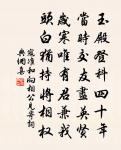 玉殿登科四十年
當時交友盡英賢
歲寒唯有君兼我
頭白猶持將相權
寇准和向相公見寄詞
典網集